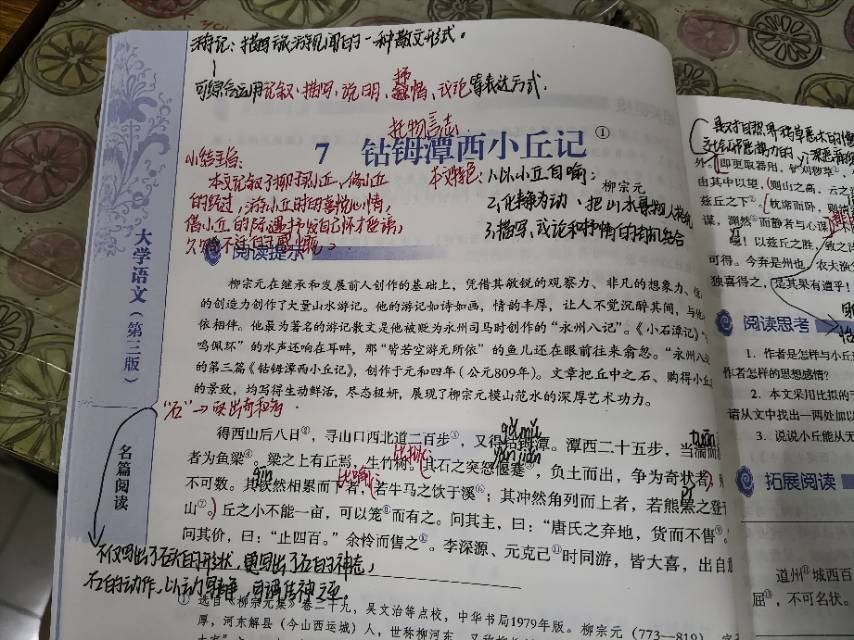 游记：描写旅游见闻的一种散文形式。
可综合运用记叙、描写、说明、抒情、议论等表达方式.
托物言志.
7 钴鉧潭西小丘记①
柳宗元
小结主旨:
本文记叙了
的经过，
本文特色：1.以小丘自喻；
2.化静为动，把山水
3.描写、议论和抒情的有机结合
阅读提示
柳宗元在继承和发展前人创作的基础上，凭借其敏锐的观察力、非凡的想象力、
的创造力创作了大量山水游记。他的游记如诗如画，情韵丰厚，让人不觉沉醉其间，与他
依相伴。他最为著名的游记散文是他被贬为永州司马时创作的“永州八记”。《小石潭记》
鸣佩环”的水声还响在耳畔，那“皆若空游无所依”的鱼儿还在眼前往来翕忽。“永州八
的第三篇《钴鉧潭西小丘记》，创作于元和四年（公元809年）。文章把丘中之石、购得小丘
的景致，均写得生动鲜活，尽态极妍，展现了柳宗元模山范水的深厚艺术功力。
“石”→突出奇和
得西山后八日②，寻山口西北道二百步③，又得钴鉧潭。潭西二十五步，当湍而
者为鱼梁④。梁之上有丘焉，生竹树。其石之突怒偃蹇⑤，负土而出，争为奇状者，
不可数。其嵚然相累而下者，若牛马之饮于溪⑥；其冲然角列而上者，若熊罴之登于
比喻
山⑦。丘之小不能一亩，可以笼⑧而有之。问其主，曰：“唐氏之弃地，货而不售⑨。”
问其价，曰：“止四百。”余怜而售之⑩。李深源、元克己⑪时同游，皆大喜，出自
不仅写出了石头的形状，更写出了石头的神态，
石头的动作，
① 选自《柳宗元集》卷二十九，吴文治等点校，中华书局1979年版。柳宗元（773—819），
厚，河东解县（今山西运城）人，世称柳河东
大学语文（第三版）
名篇阅读
外。即更取器用，铲刈秽草，
由其中以望，则山之高，云之
兹丘之下。枕席而卧，则
谋，渊然而静者与心谋
！以兹丘之胜，致之
可得。今弃是州也，农夫渔
独喜得之，是其果有遭乎！
阅读思考
1. 作者是怎样与小丘
作者怎样的思想感情？
2. 本文采用比拟的手
请从文中找出一两处加以
3. 说说小丘能从无
拓展阅读
道州①城西百
屈③，不可名状。